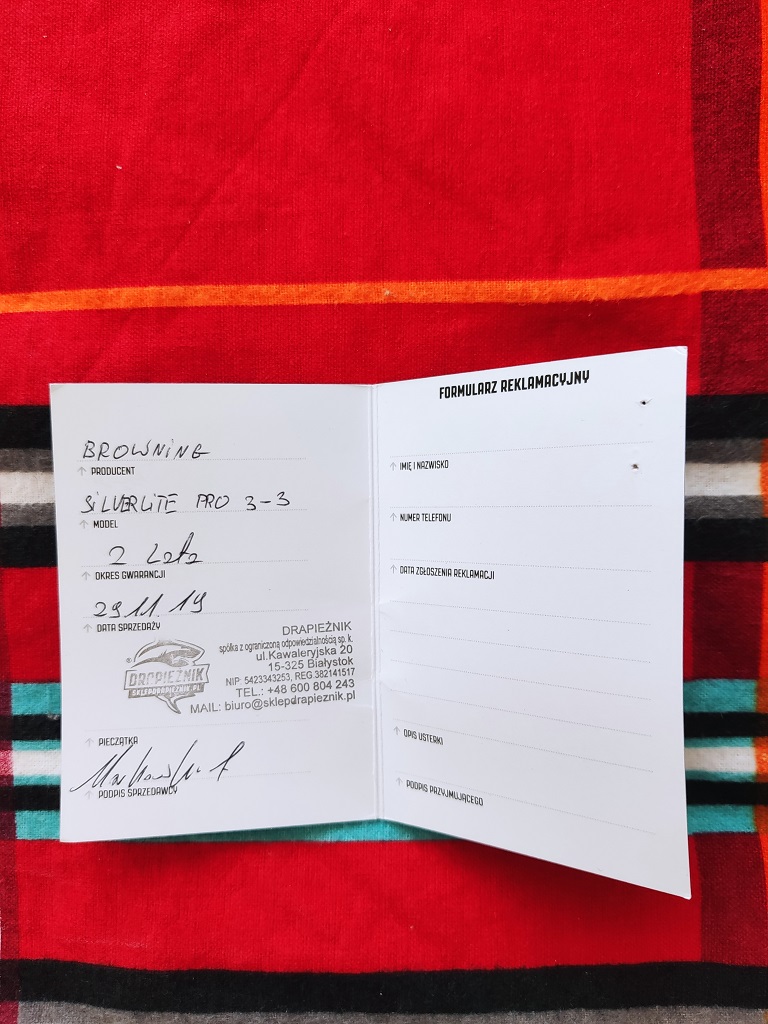 BROWNING
↑ PRODUCENT
SILVERLITE PRO 3-3
↑ MODEL
2 Lata
↑ OKRES GWARANCJI
29.11.19
↑ DATA SPRZEDAŻY
® DRAPIEŻNIK
SKLEPDRAPIEZNIK.PL
DRAPIEŻNIK
spółka z ograniczoną odpowiedzialnością sp. k.
ul.Kawaleryjska 20
15-325 Białystok
NIP: 5423343253, REG.382141517
TEL.: +48 600 804 243
MAIL: biuro@sklepdrapieznik.pl
↑ PIECZĄTKA
↑ PODPIS SPRZEDAWCY
FORMULARZ REKLAMACYJNY
↑ IMIĘ I NAZWISKO
↑ NUMER TELEFONU
↑ DATA ZGŁOSZENIA REKLAMACJI
↑ OPIS USTERKI
↑ PODPIS PRZYJMUJĄCEGO